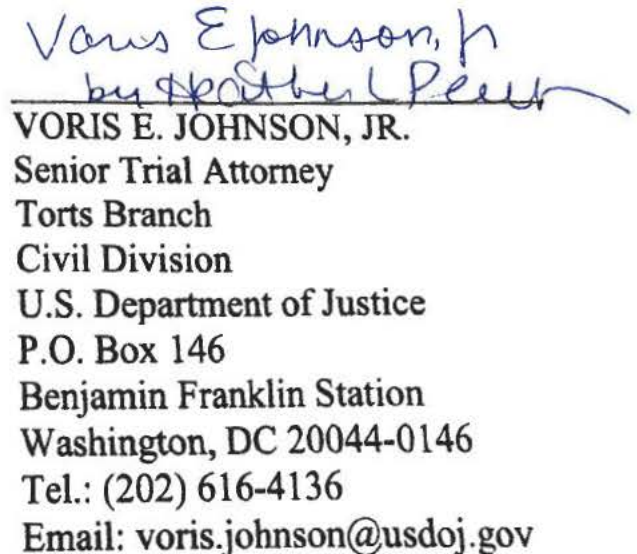 Voris E Johnson, Jr
by Heather L Pearl
VORIS E. JOHNSON, JR.
Senior Trial Attorney
Torts Branch
Civil Division
U.S. Department of Justice
P.O. Box 146
Benjamin Franklin Station
Washington, DC 20044-0146
Tel.: (202) 616-4136
Email: voris.johnson@usdoj.gov